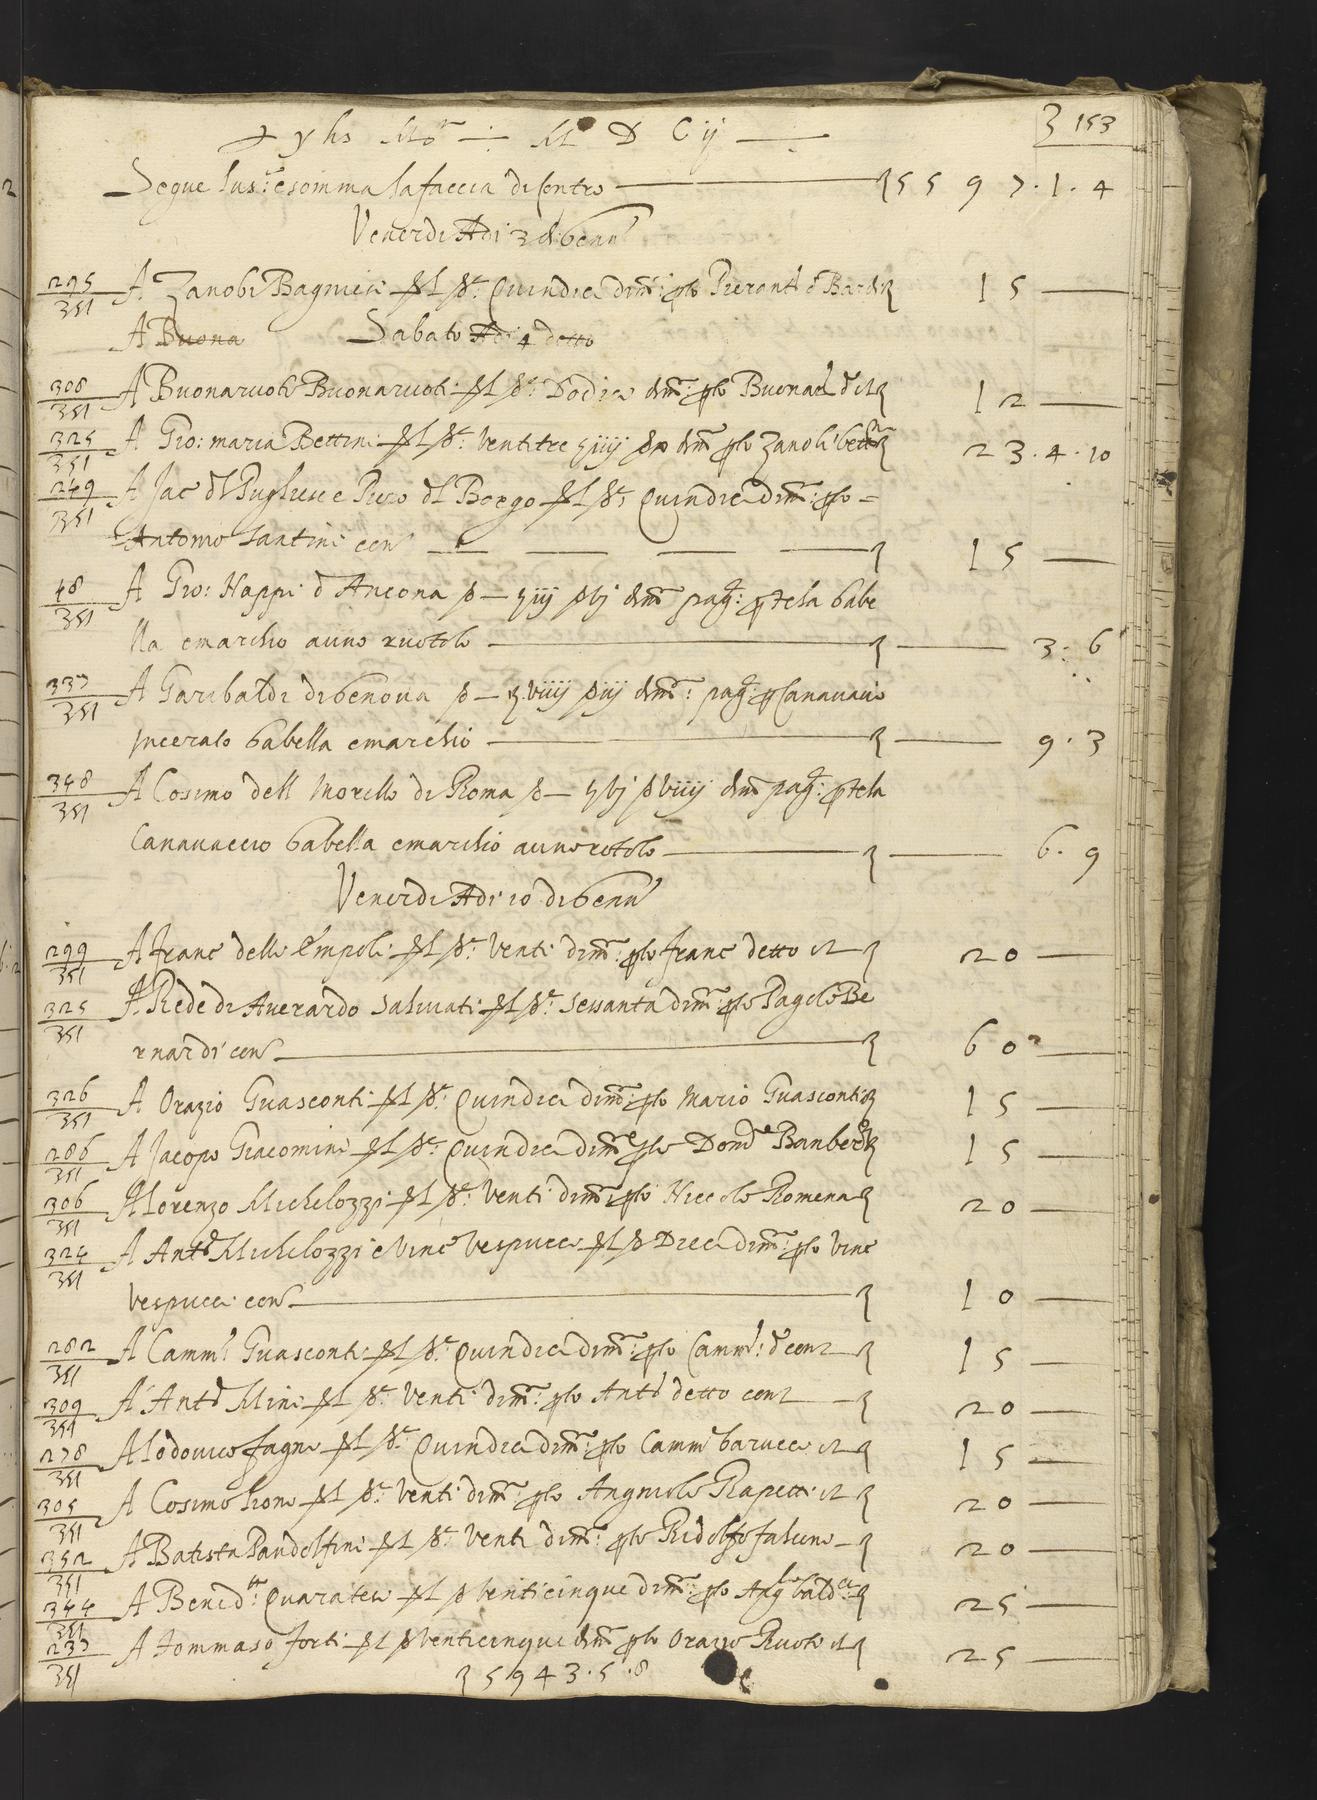 153
+ yhs Mar — M D C ij —
Segue sus.e somma la faccia di contro — 5597.1.4
Venerdi Adi 3 di Genn
295/351 A Zanobi Bagniesi ₰L ∇: Quindici dimᵗ: plo Pierantᵒ d Bardi 15 —
A Buona Sabato Adi 4 detto
308/351 A Buonaruoti Buonaruoti ₰L ∇: Dodici dmᵗ: plo Buonarᵗⁱ dᵒ 12 —
325/351 A Gio: maria Bettini ₰L ∇: Ventitre iiij dmᵗ plo Zanobi bettini 23.4.10
249/351 A Jac dl Pugliese e Piero dl Borgo ₰L ∇: Quindici dmᵗ: plo =
Antonio Santini con — — — — 15 —
48/351 A Gio: Happi d Ancona ∇ — iij vj dmᵗ pagᵗ: p tela Gabe
lla e marchio a uno ruotolo — 3:6
337/351 A Garibaldi di Genova ∇ — viiij iij dmᵗ: pagᵗ: p Canavacio
Incerato Gabella e marchio — 9.3
348/351 A Cosimo dell Morello di Roma ∇ — vj viiij dmᵗ pagᵗ: p tela
Canavaccio Gabella e marchio a uno rotolo — 6.9
Venerdi Adi 10 di Genn
299/351 A franc dello Empoli ₰L ∇: Venti dimᵗ: plo franc detto 20 —
325/351 A Rede di Averardo Salviati ₰L ∇: Sessanta dimᵗ plo Pagolo Be
rnardi con — 60 —
326/351 A Orazio Guasconti ₰L ∇: Quindici dimᵗ: plo Mario Guasconti 15 —
286/351 A Jacopo Giacomini ₰L ∇: Quindici dimᵗ plo Domᶜᵒ Banbe 15 —
306/351 A Lorenzo Michelozzi ₰L ∇: Venti dimᵗ: plo Niccolo Romena 20 —
324/351 A Antᵒ Michelozzi e Vincᵒ Vespucci ₰L ∇ Dieci dimᵗ: plo Vinc
Vespucci con — 10 —
282/351 A Cammˡ Guasconti ₰L ∇: Quindici dimᵗ: plo Cammˡ: dᵒ con 15 —
309/351 A Antᵒ Mini ₰L ∇: Venti dimᵗ: plo Antᵒ detto con — 20 —
278/351 A Lodovico fagni ₰L ∇: Quindici dimᵗ: plo Cammˡ barucci 15 —
305/351 A Cosimo ₰L ∇: Venti dimᵗ: plo Angniolo Rapetti 20 —
352/351 A Batista Pandolfini ₰L ∇: Venti dimᵗ: plo Ridolfo falconi — 20 —
344/351 A Benedᵗᵗᵒ Quaratesi ₰L ∇ Venticinque dimᵗ: plo Agᵒ bald 25 —
237/351 A Tommaso forti ₰L ∇ Venticinque dmᵗ plo Orazio 25 —
5943.5.8